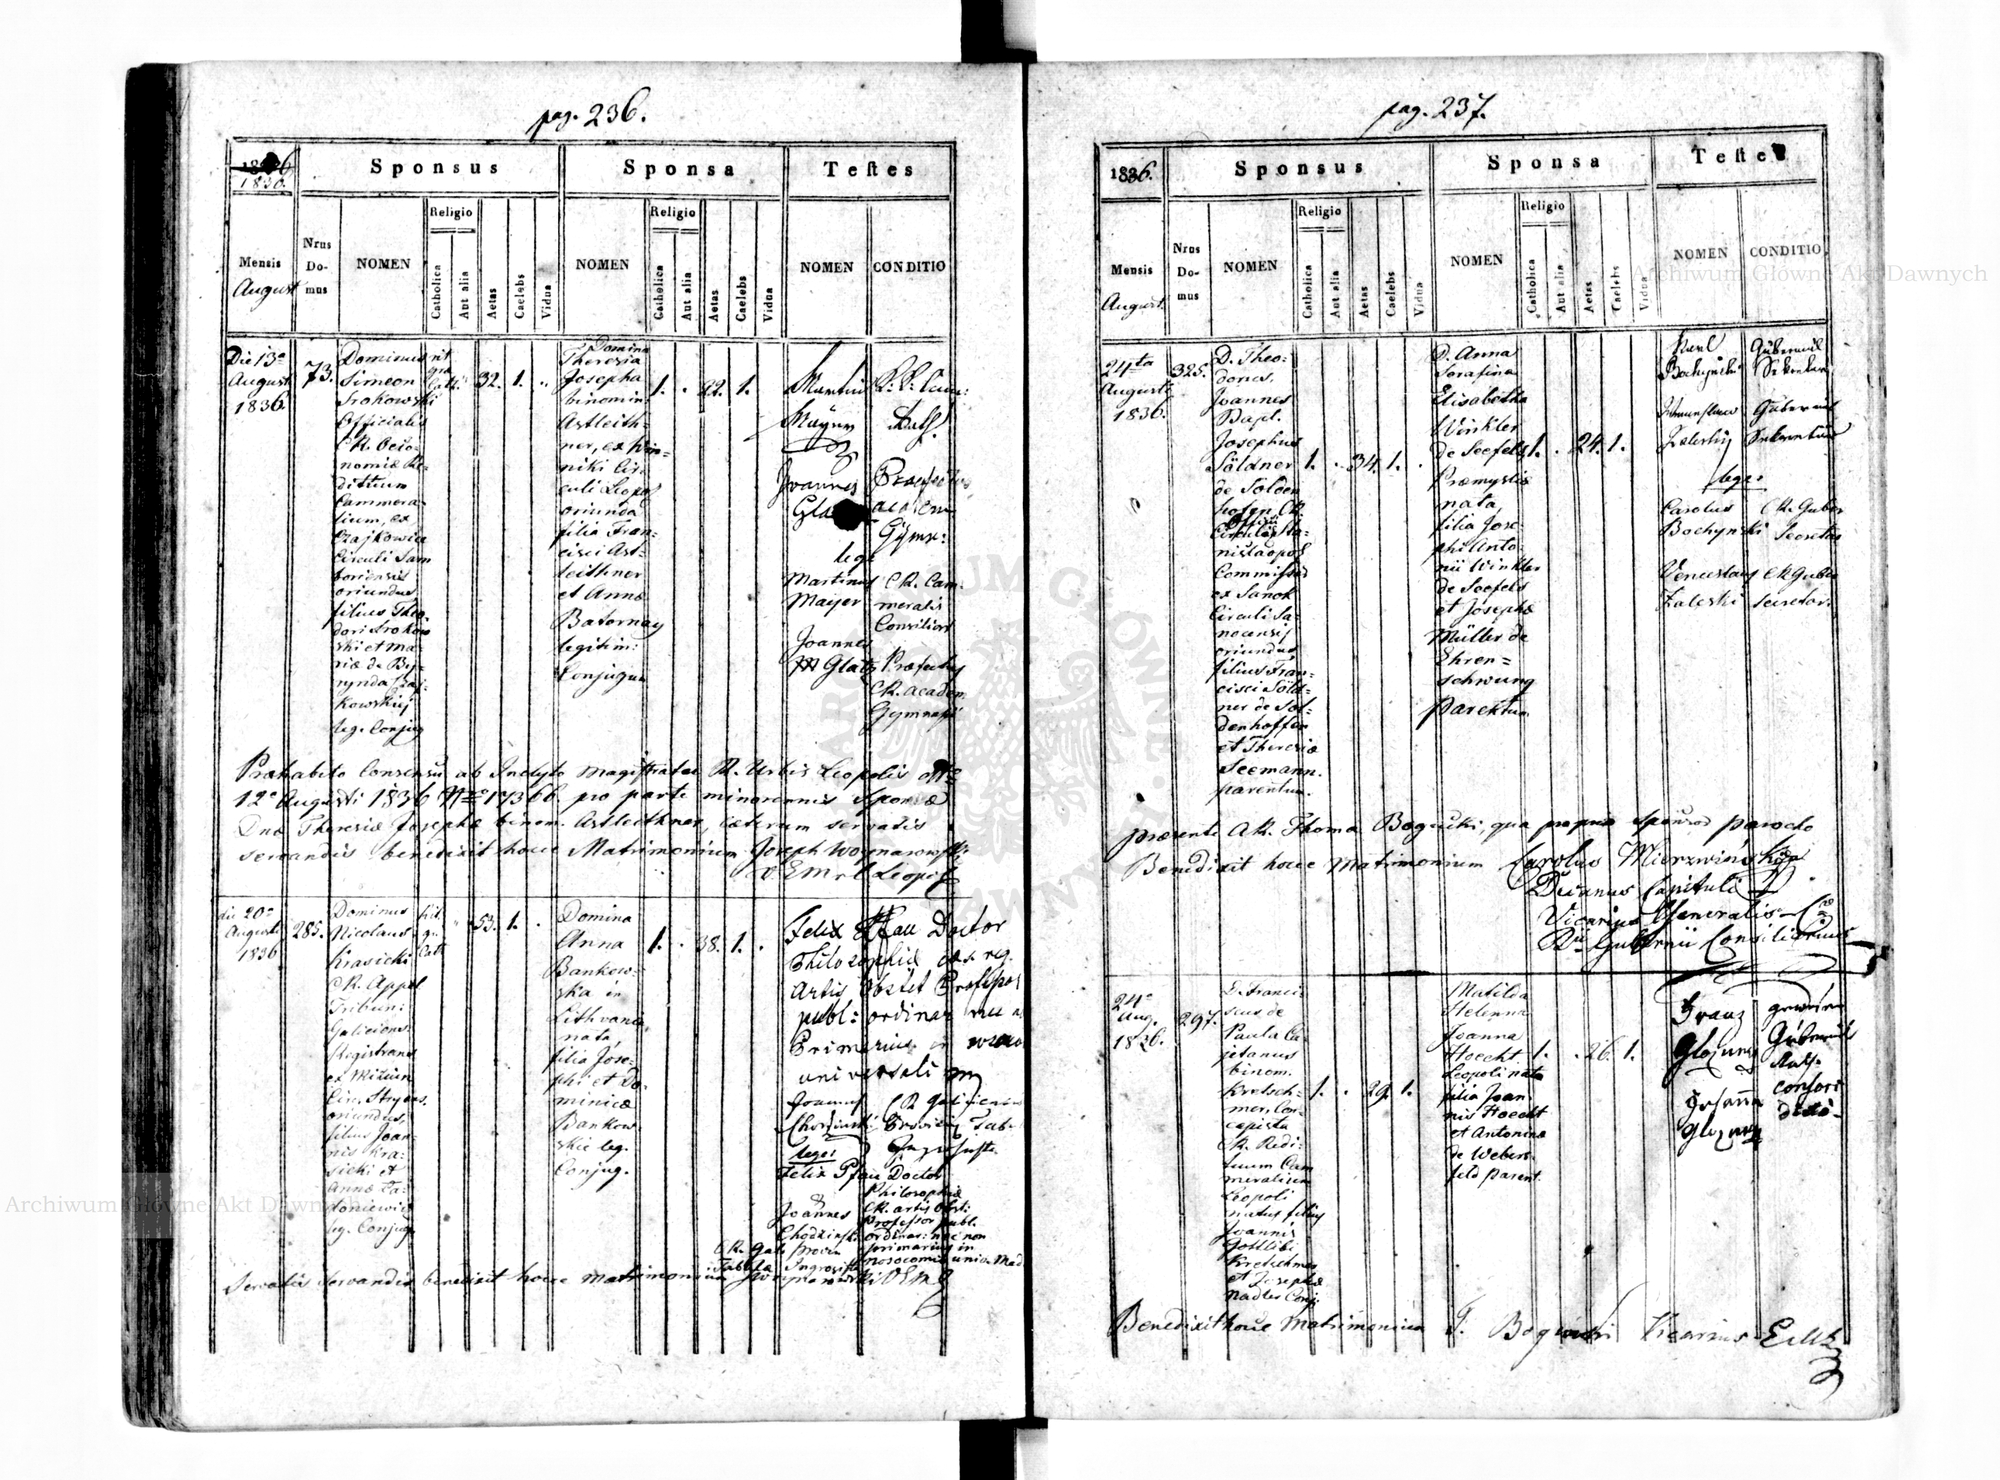 pag. 236.
1836.
Sponsus
Sponsa
Testes
Mensis
August
Nrus
Do-
mus
NOMEN
Religio
Catholica
Aut alia
Aetas
Caelebs
Vidua
NOMEN
Religio
Catholica
Aut alia
Aetas
Caelebs
Vidua
NOMEN
CONDITIO
Die 13a
August
1836.
73.
Dominus
Simeon
Srokowski
Officialis
CR. Oeco-
nomiæ Re-
dituum
Cammera-
lium, ex
Czajkowice
Circuli Sam
boriensis
oriundus
filius Theo-
dori Srokow
ski et Ma-
riæ de By-
rynda Czaj-
kowskij
leg. Conjug
rit
gra
Cat.
32. 1.
Domina
Theresia
Josepha
binomin
Astleith-
ner, ex Win-
niki Cir-
culi Leopol
oriunda
filia Fran-
cisci Ast-
leithner
et Anna
Batornay
legitim:
Conjugum
1. . 22. 1.
Martin
Mayer
Joannes
lege
Martinus CR. Cam-
Mayer meralis
Consiliari
Joannes
Glatz Præfectus
CR. academ
Gymnasii
Præhabito Consensu ab Inclyto Magistratu R. Urbis Leopolis dtto
12a Augusti 1836 Nro 17366. pro parte minorennis Sponsæ
Dnæ Theresiæ Josephæ binom. Astleithner, cæterum servatis
servandis benedixit hocce Matrimonium Joseph
die 20a
Augusti
1836
285.
Dominus
Nicolaus
Krasicki
CR. Appel
Tribun:
Galiciens.
Registrans
ex Mizun
Circ. Stryens.
oriundus,
filius Joan-
nis Kra-
sicki et
Annæ Za-
toniewicz
leg. Conjug.
rit.
g.
Cat.
53. 1. .
Domina
Anna
Bankow-
ska in
Lithvania
nata,
filia Jose-
phi et Do-
minicæ
Bankow
skie leg.
Conjug.
1. . 38. 1. .
Felix Pfau Doctor
Philosophiæ cæs. reg.
Artis Obstet Professor
publ: ordinar nec n
Primarius in
universali
Joannes CR Galicien
lege:
Felix Pfau Doctor
Philosophiæ
CR. artis Obst:
Professor publ.
ordinar: nec non
primarius in
nosocomio univers.
Joannes
Chodzinski
CR. Gali Provin
Tabula Ingrossista
Servatis Servandis benedixit hocce matrimonium
pag. 237.
1836.
Sponsus
Sponsa
Testes
Mensis
August.
Nrus
Do-
mus
NOMEN
Religio
Catholica
Aut alia
Aetas
Caelebs
Vidua
NOMEN
Religio
Catholica
Aut alia
Aetas
Caelebs
Vidua
NOMEN
CONDITIO
24ta
Augusti
1836.
325.
D. Theo-
dorus
Joannes
Bapt.
Josephus
Söldner
de Solden
hofen, CR.
Circuli Sta-
nislaopol
Commissar
ex Sanok
Circuli Sa-
nocensis
oriundus
filius Fran-
cisci Söld-
ner de Sol-
denhoffen
et Theresiæ
Seemann.
parentum.
1. . 34. 1. .
D. Anna
Serafina
Elisabetha
Winkler
de Seefels
Præmysliæ
nata,
filia Jose-
phi Anto-
nii Winkler
de Seefels
et Josephæ
Müller de
Ehren=
schwung
Parentum
1. . 24. 1.
Karl Gubernial
Bochynski Sekretär
Zaleski Sekretär
lege:
Carolus CR. Guber
Bochynski Secretar
Venceslaus CR Guber
Zaleski Secretar.
præsente A. R. Thoma Bogucki, qua proprio sponsor parocho
Benedixit hocce Matrimonium Carolus Mierzwinski
Decanus Capituli
Vicarius Generalis
Gubernii Consiliarius
24a
Aug.
1836.
297.
D. Francis-
cus de
Paula Ca-
jetanus
binom.
Kretsch-
mer, Con-
cepista
CR. Redi-
tuum Cam
meralium
Leopoli
natus filius
Joannis
Gottlibi
Kretschmer
et Josephæ
Nadler Conj.
1. . 29. 1.
Matilda
Helenna
Joanna
Hoecht
Leopoli nata
filia Joan-
nis Hoecht
et Antoninæ
de Webers-
feld parent.
1. . 26. 1.
Franz
Johanna
Benedixit hocce Matrimonium T. Bogucki Vicarius
Archiwum Główne Akt Dawnych
Archiwum Główne Akt Dawnych
ARCHIWUM GŁÓWNE AKT DAWNYCH